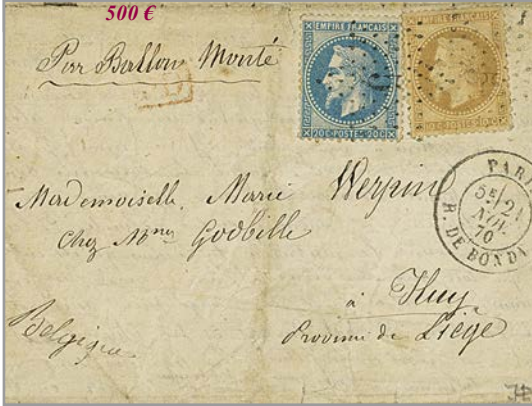 500 €
Par Ballon Monté
EMPIRE FRANÇAIS
20C POSTES 20C
EMPIRE FRANÇAIS
10C POSTES 10C
PARI
5E/2
NOV.
70
R. DE BONDY
Mademoiselle Marie Werpin
Chez Mme Godbille
à Huy
Province de Liège
Belgique